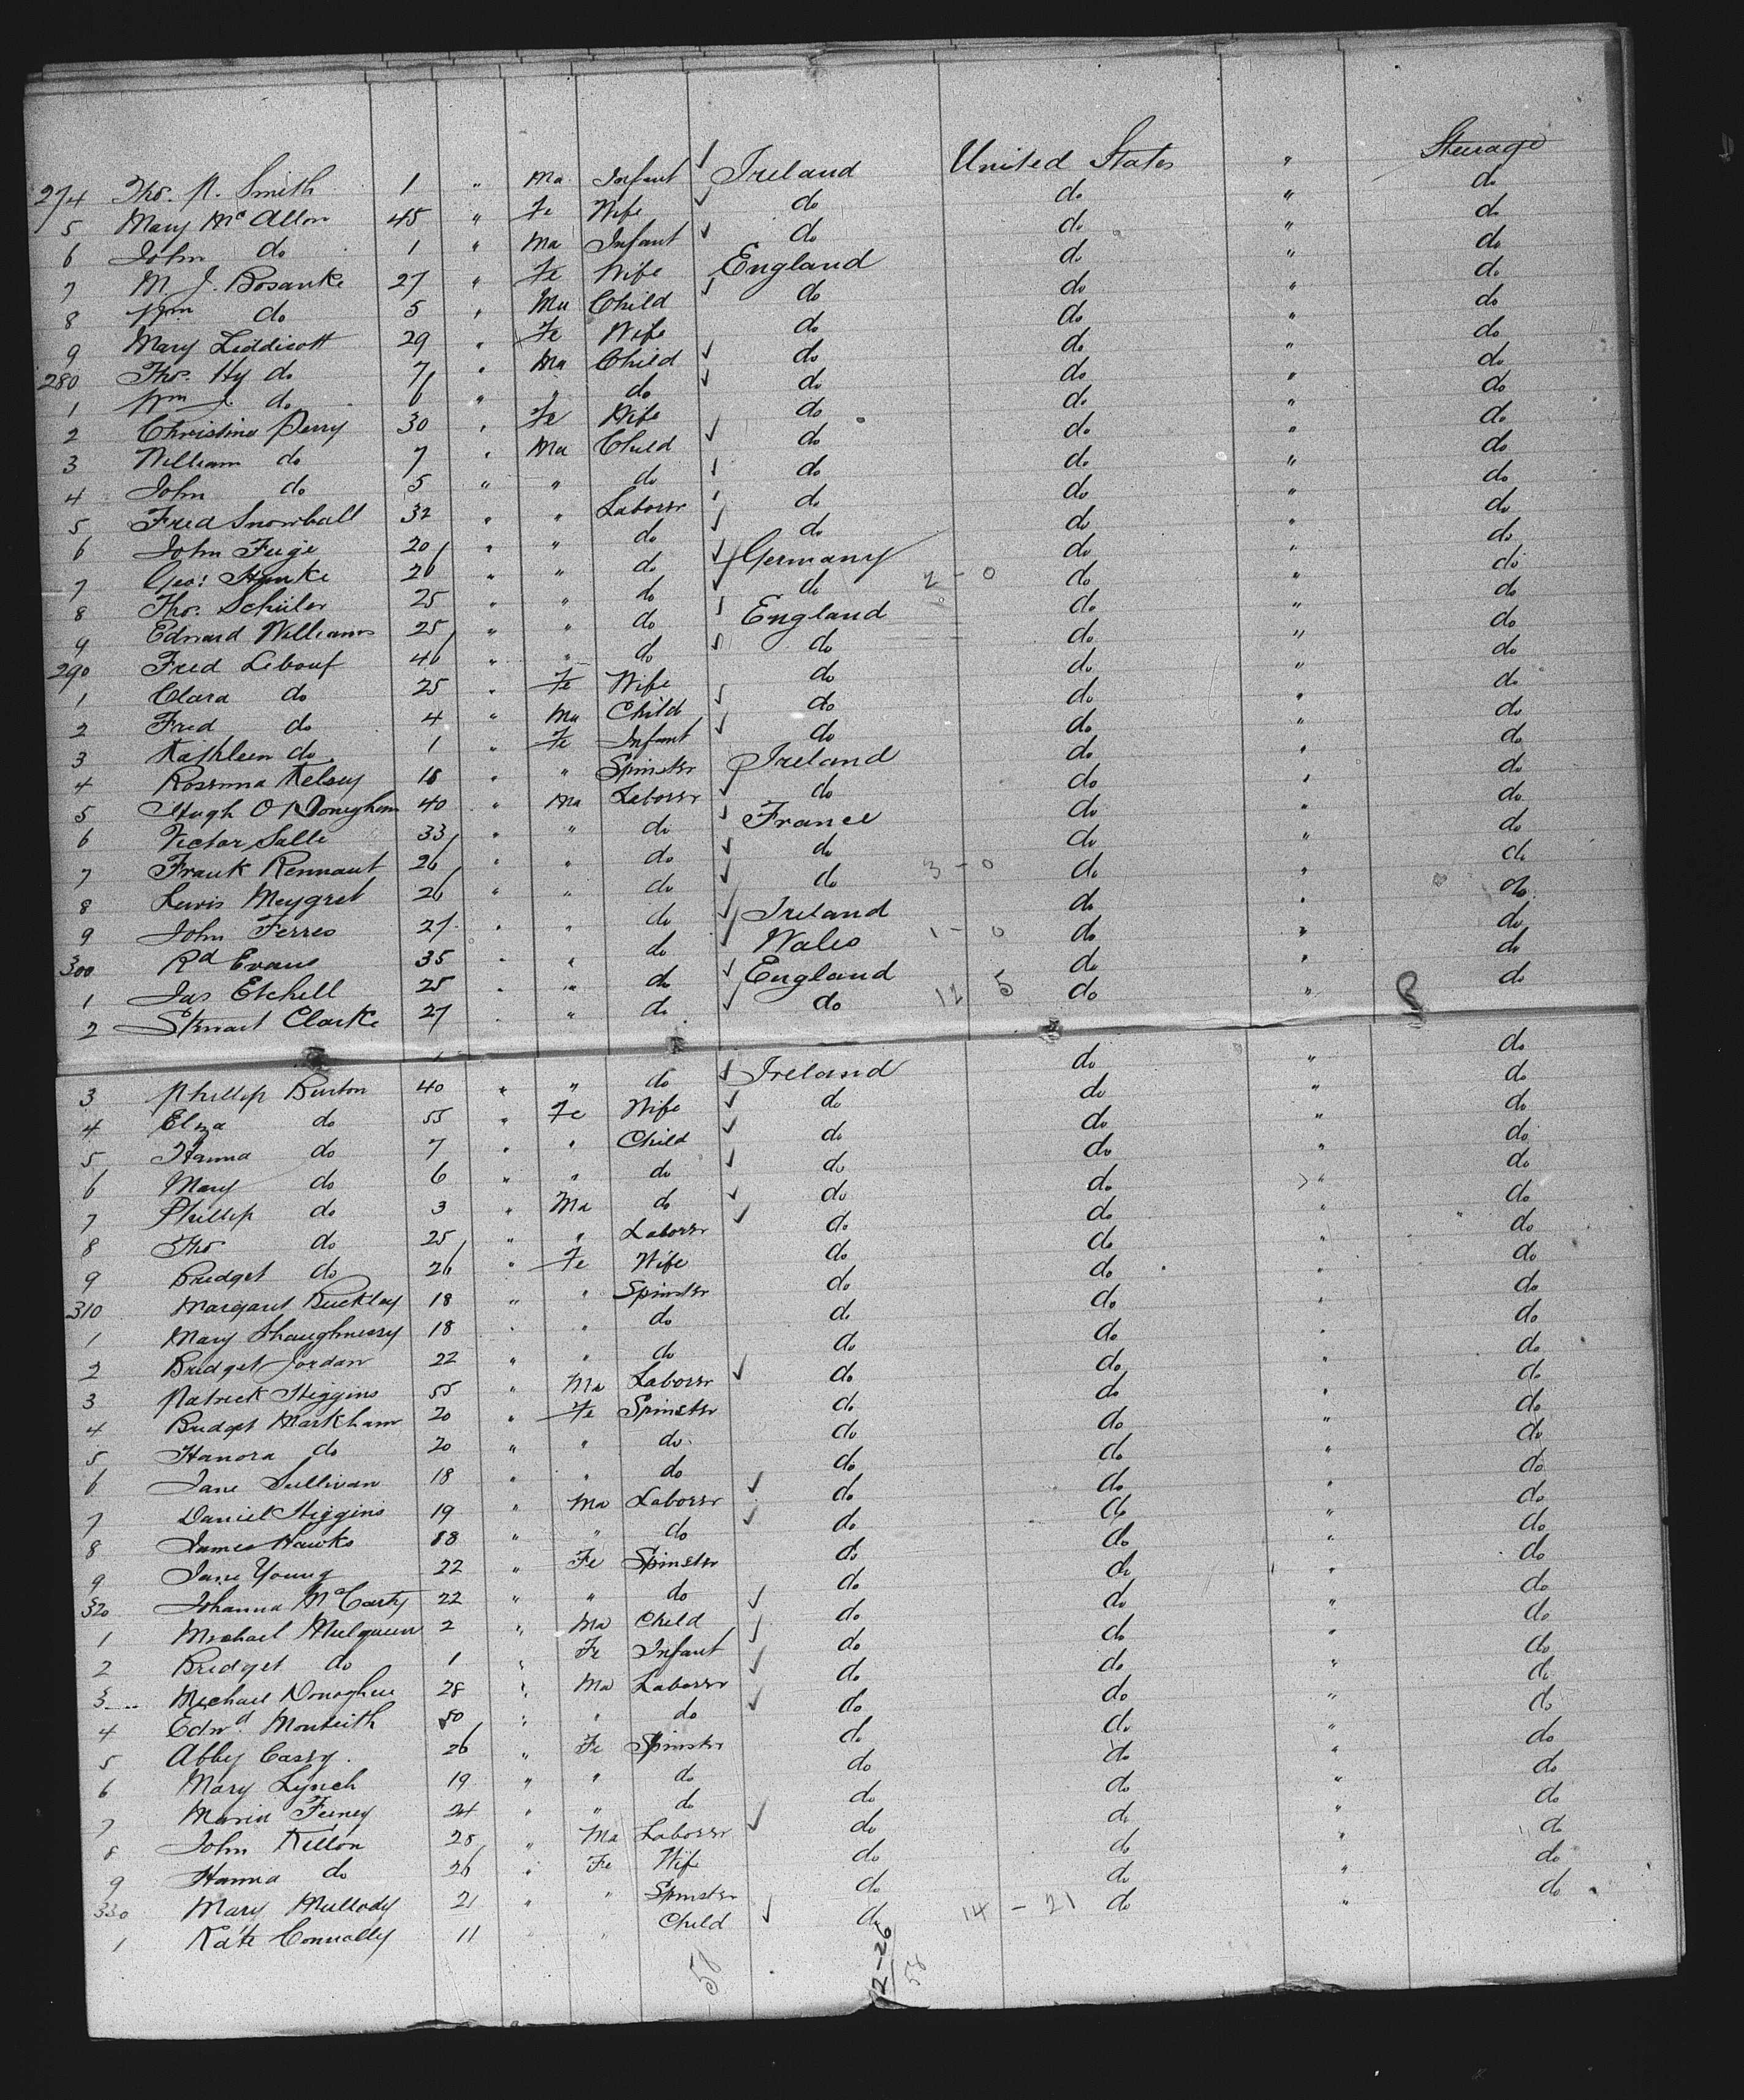 274 Tho. P. Smith 1 " Ma Infant ✓ Ireland United States " Steerage
5 Mary McAllon 45 " Fe Wife ✓ do do " do
6 John do 1 " Ma Infant ✓ do do " do
7 M J. Bosanke 27 " Fe Wife England do " do
8 Wm do 5 " Ma Child ✓ do do " do
9 Mary Liddicott 29 " Fe Wife do do " do
280 Tho. Hy do 7 " Ma Child ✓ do do " do
1 Wm J. do 6 " " do ✓ do do " do
2 Christina Perry 30 " Fe Wife do do " do
3 William do 7 " Ma Child ✓ do do " do
4 John do 5 " " do ✓ do do " do
5 Fred Snowball 32 " " Laborer ✓ do do " do
6 John Fuge 20 " " do ✓ do do " do
7 Geo: Hanke 26 " " do ✓ Germany do " do
8 Tho. Schüler 25 " " do ✓ do 2 - 0 do " do
9 Edward Williams 25 " " do ✓ England do " do
290 Fred Lebouf 46 " " do ✓ do do " do
1 Clara do 25 " Fe Wife do do " do
2 Fred do 4 " Ma Child ✓ do do " do
3 Kathleen do 1 " Fe Infant ✓ do do " do
4 Rosanna Kelsey 18 " " Spinster Ireland do " do
5 Hugh O'Donnghem 40 " Ma Laborer ✓ do do " do
6 Victor Salle 33 " " do ✓ France do " do
7 Frank Rennaut 26 " " do ✓ do do " do
8 Lewis Meygret 26 " " do ✓ do 3 - 0 do " do
9 John Ferres 27 " " do ✓ Ireland do " do
300 Rd Evans 35 " " do ✓ Wales 1 - 0 do " do
1 Jas Etchell 25 " " do ✓ England do " do
2 Stewart Clarke 27 " " do ✓ do 12 5 do " do
3 Phillip Burton 40 " " do ✓ Ireland do " do
4 Eliza do 55 " Fe Wife ✓ do do " do
5 Hanna do 7 " " Child ✓ do do " do
6 Mary do 6 " " do ✓ do do " do
7 Phillip do 3 " Ma do ✓ do do " do
8 Tho do 25 " " Laborer ✓ do do " do
9 Bridget do 26 " Fe Wife do do " do
310 Margaret Buckley 18 " " Spinster do do " do
1 Mary Shaughnessy 18 " " do do do " do
2 Bridget Jordan 22 " " do do do " do
3 Patrick Higgins 55 " Ma Laborer ✓ do do " do
4 Bridget Markham 20 " Fe Spinster do do " do
5 Hanora do 20 " " do do do " do
6 Jane Sullivan 18 " " do do do " do
7 Daniel Higgins 19 " Ma Laborer ✓ do do " do
8 James Hawks 18 " " do ✓ do do " do
9 Jane Young 22 " Fe Spinster do do " do
320 Johanna McCarty 22 " " do do do " do
1 Michael Mulqueen 2 " Ma Child ✓ do do " do
2 Bridget do 1 " Fe Infant ✓ do do " do
3 Michael Donoghue 28 " Ma Laborer ✓ do do " do
4 Edwd Monteith 50 " " do ✓ do do " do
5 Abby Casey 26 " Fe Spinster do do " do
6 Mary Lynch 19 " " do do do " do
7 Maria Feeney 24 " " do do do " do
8 John Killon 28 " Ma Laborer ✓ do do " do
9 Hanna do 26 " Fe Wife do do " do
330 Mary Mullody 21 " " Spinster do do " do
1 Kate Connolly 11 " " Child ✓ do 14 - 21 do " do
58